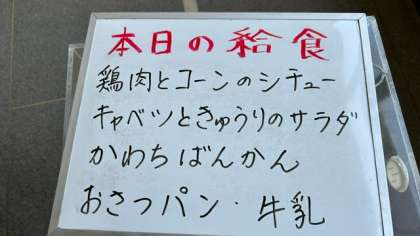 本日の給食
鶏肉とコーンのシチュー
キャベツときゅうりのサラダ
かわちばんかん
おさつパン・牛乳